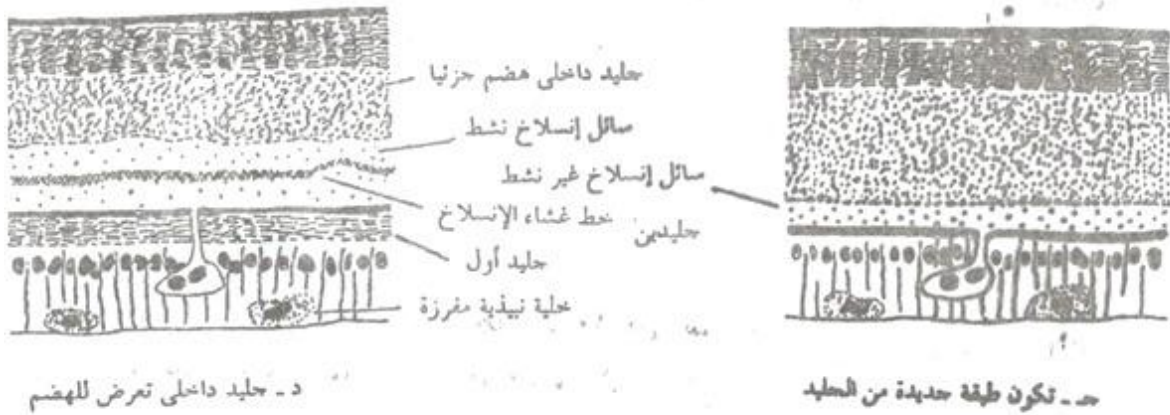 جليد داخلى هضم جزئيا
سائل إنسلاخ نشط
سائل إنسلاخ غير نشط
خط غشاء الإنسلاخ
جليدين
جليد أول
خلية نبيذية مفرزة
د - جليد داخلى تعرض للهضم
جـ - تكون طبقة جديدة من الجليد